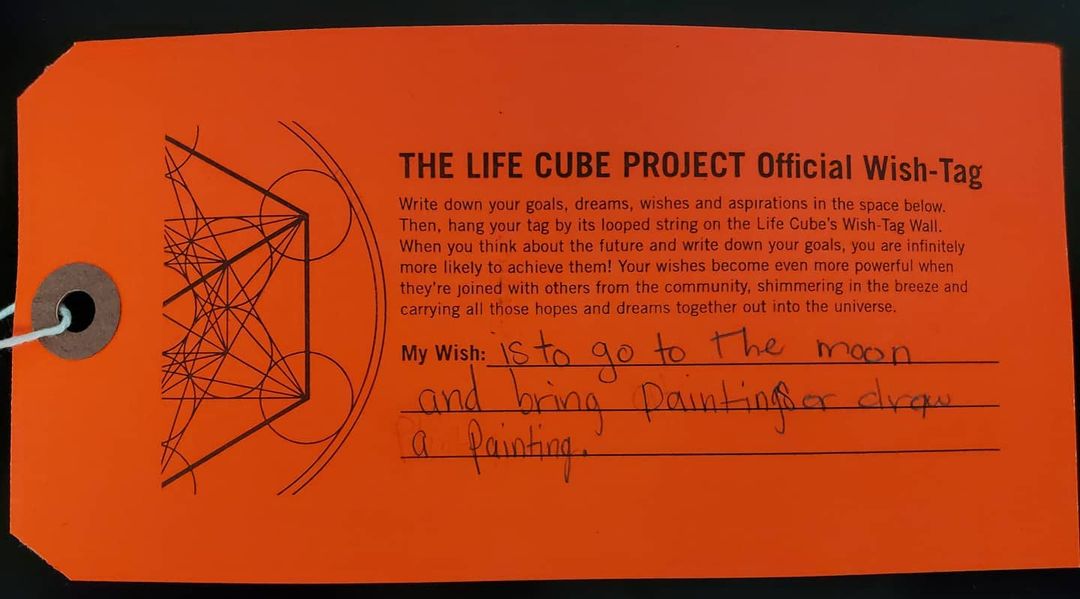 THE LIFE CUBE PROJECT Official Wish-Tag
Write down your goals, dreams, wishes and aspirations in the space below.
Then, hang your tag by its looped string on the Life Cube's Wish-Tag Wall.
When you think about the future and write down your goals, you are infinitely
more likely to achieve them! Your wishes become even more powerful when
they're joined with others from the community, shimmering in the breeze and
carrying all those hopes and dreams together out into the universe.
My Wish: is to go to The moon
and bring Paintings or draw
a Painting.